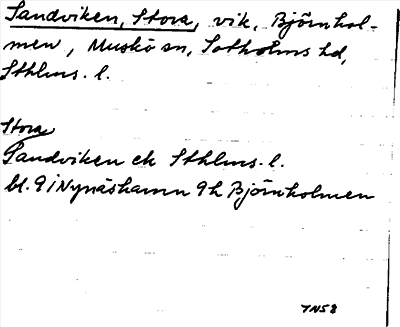 Sandviken, Stora, vik, Björnhol-
men, Muskö sn, Sotholms hd,
Sthlms. l.
Stora
Sandviken ek Sthlms. l.
bl. 9 i Nynäshamn 9h Björnholmen
7N58